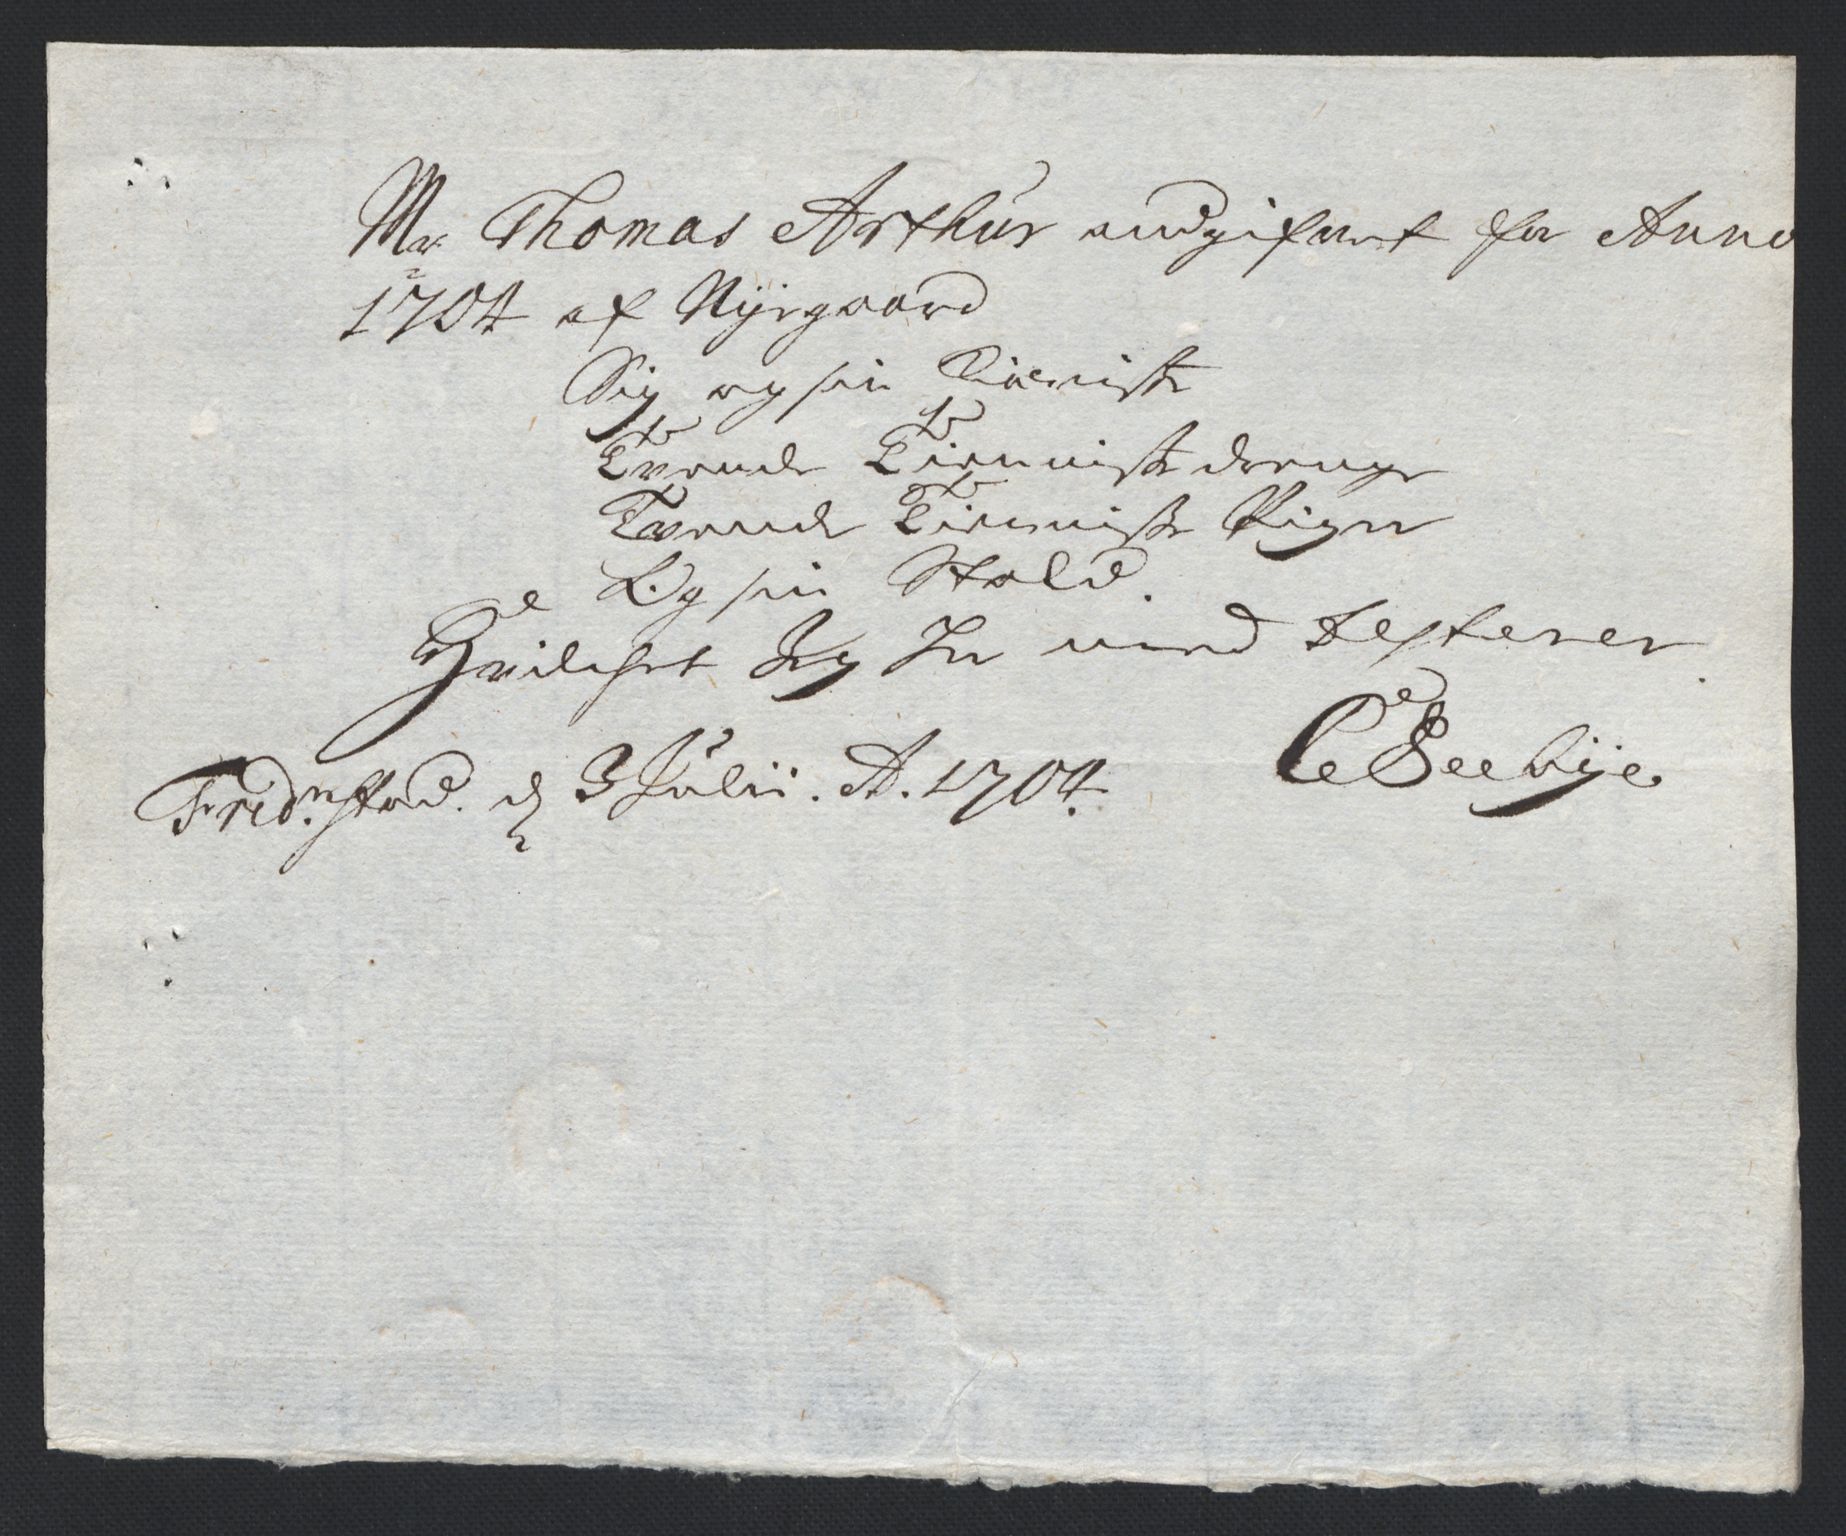 Mr Thomas Arthur angifvet for Anno
1704 af Nyegaard
Sig og sin Kieriste
Tvende Tienniste drenge
Tvende Tienniste Piger
Og sin Stald.
Hvilchet Jeg Her med testerer
Fridrstad. d 3 Julii. A. 1704.
Seebye